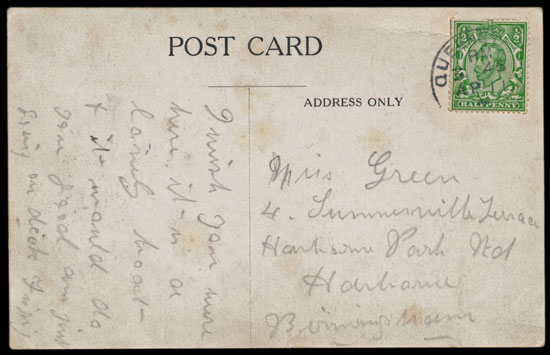 POST CARD
ADDRESS ONLY
HALFPENNY
I wish you were
here, it is a
lovely boat
& it would do
you good am just
going on deck
Miss Green
4. Summerville Terrace
Harborne Park Rd
Harborne
Birmingham